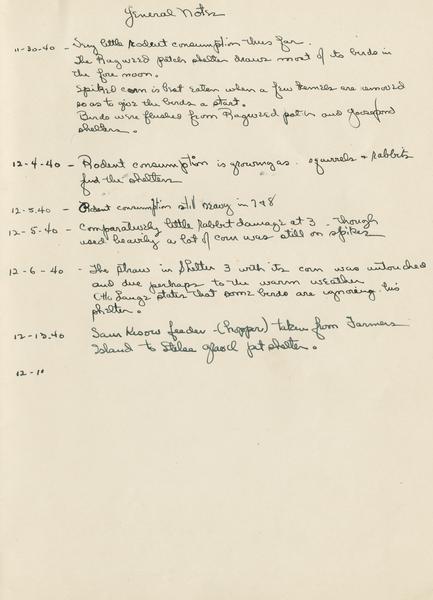 General Notes
11-30-40 - Very little rodent consumption thus far.
The Ragweed patch shelter draws most of its birds in
the fore noon.
Spiked corn is best eaten when a few kernels are removed
so as to give the birds a start.
Birds were flushed from Ragweed patch and
shelters.
12-4-40 - Rodent consumption is growing as squirrels & rabbits
find the shelters
12-5-40 - Rodent consumption still heavy in 7 & 8
12-5-40 - Comparatively little rabbit damage at 3 - though
used heavily a lot of corn was still on spikes
12-6-40 - The straw in Shelter 3 with its corn was untouched
and due perhaps to the warm weather
Otto Lange states that some birds are ignoring his
shelter.
12-13-40 Sam feeder - (hopper) taken from Farmers
Island to pit shelter.
12-10